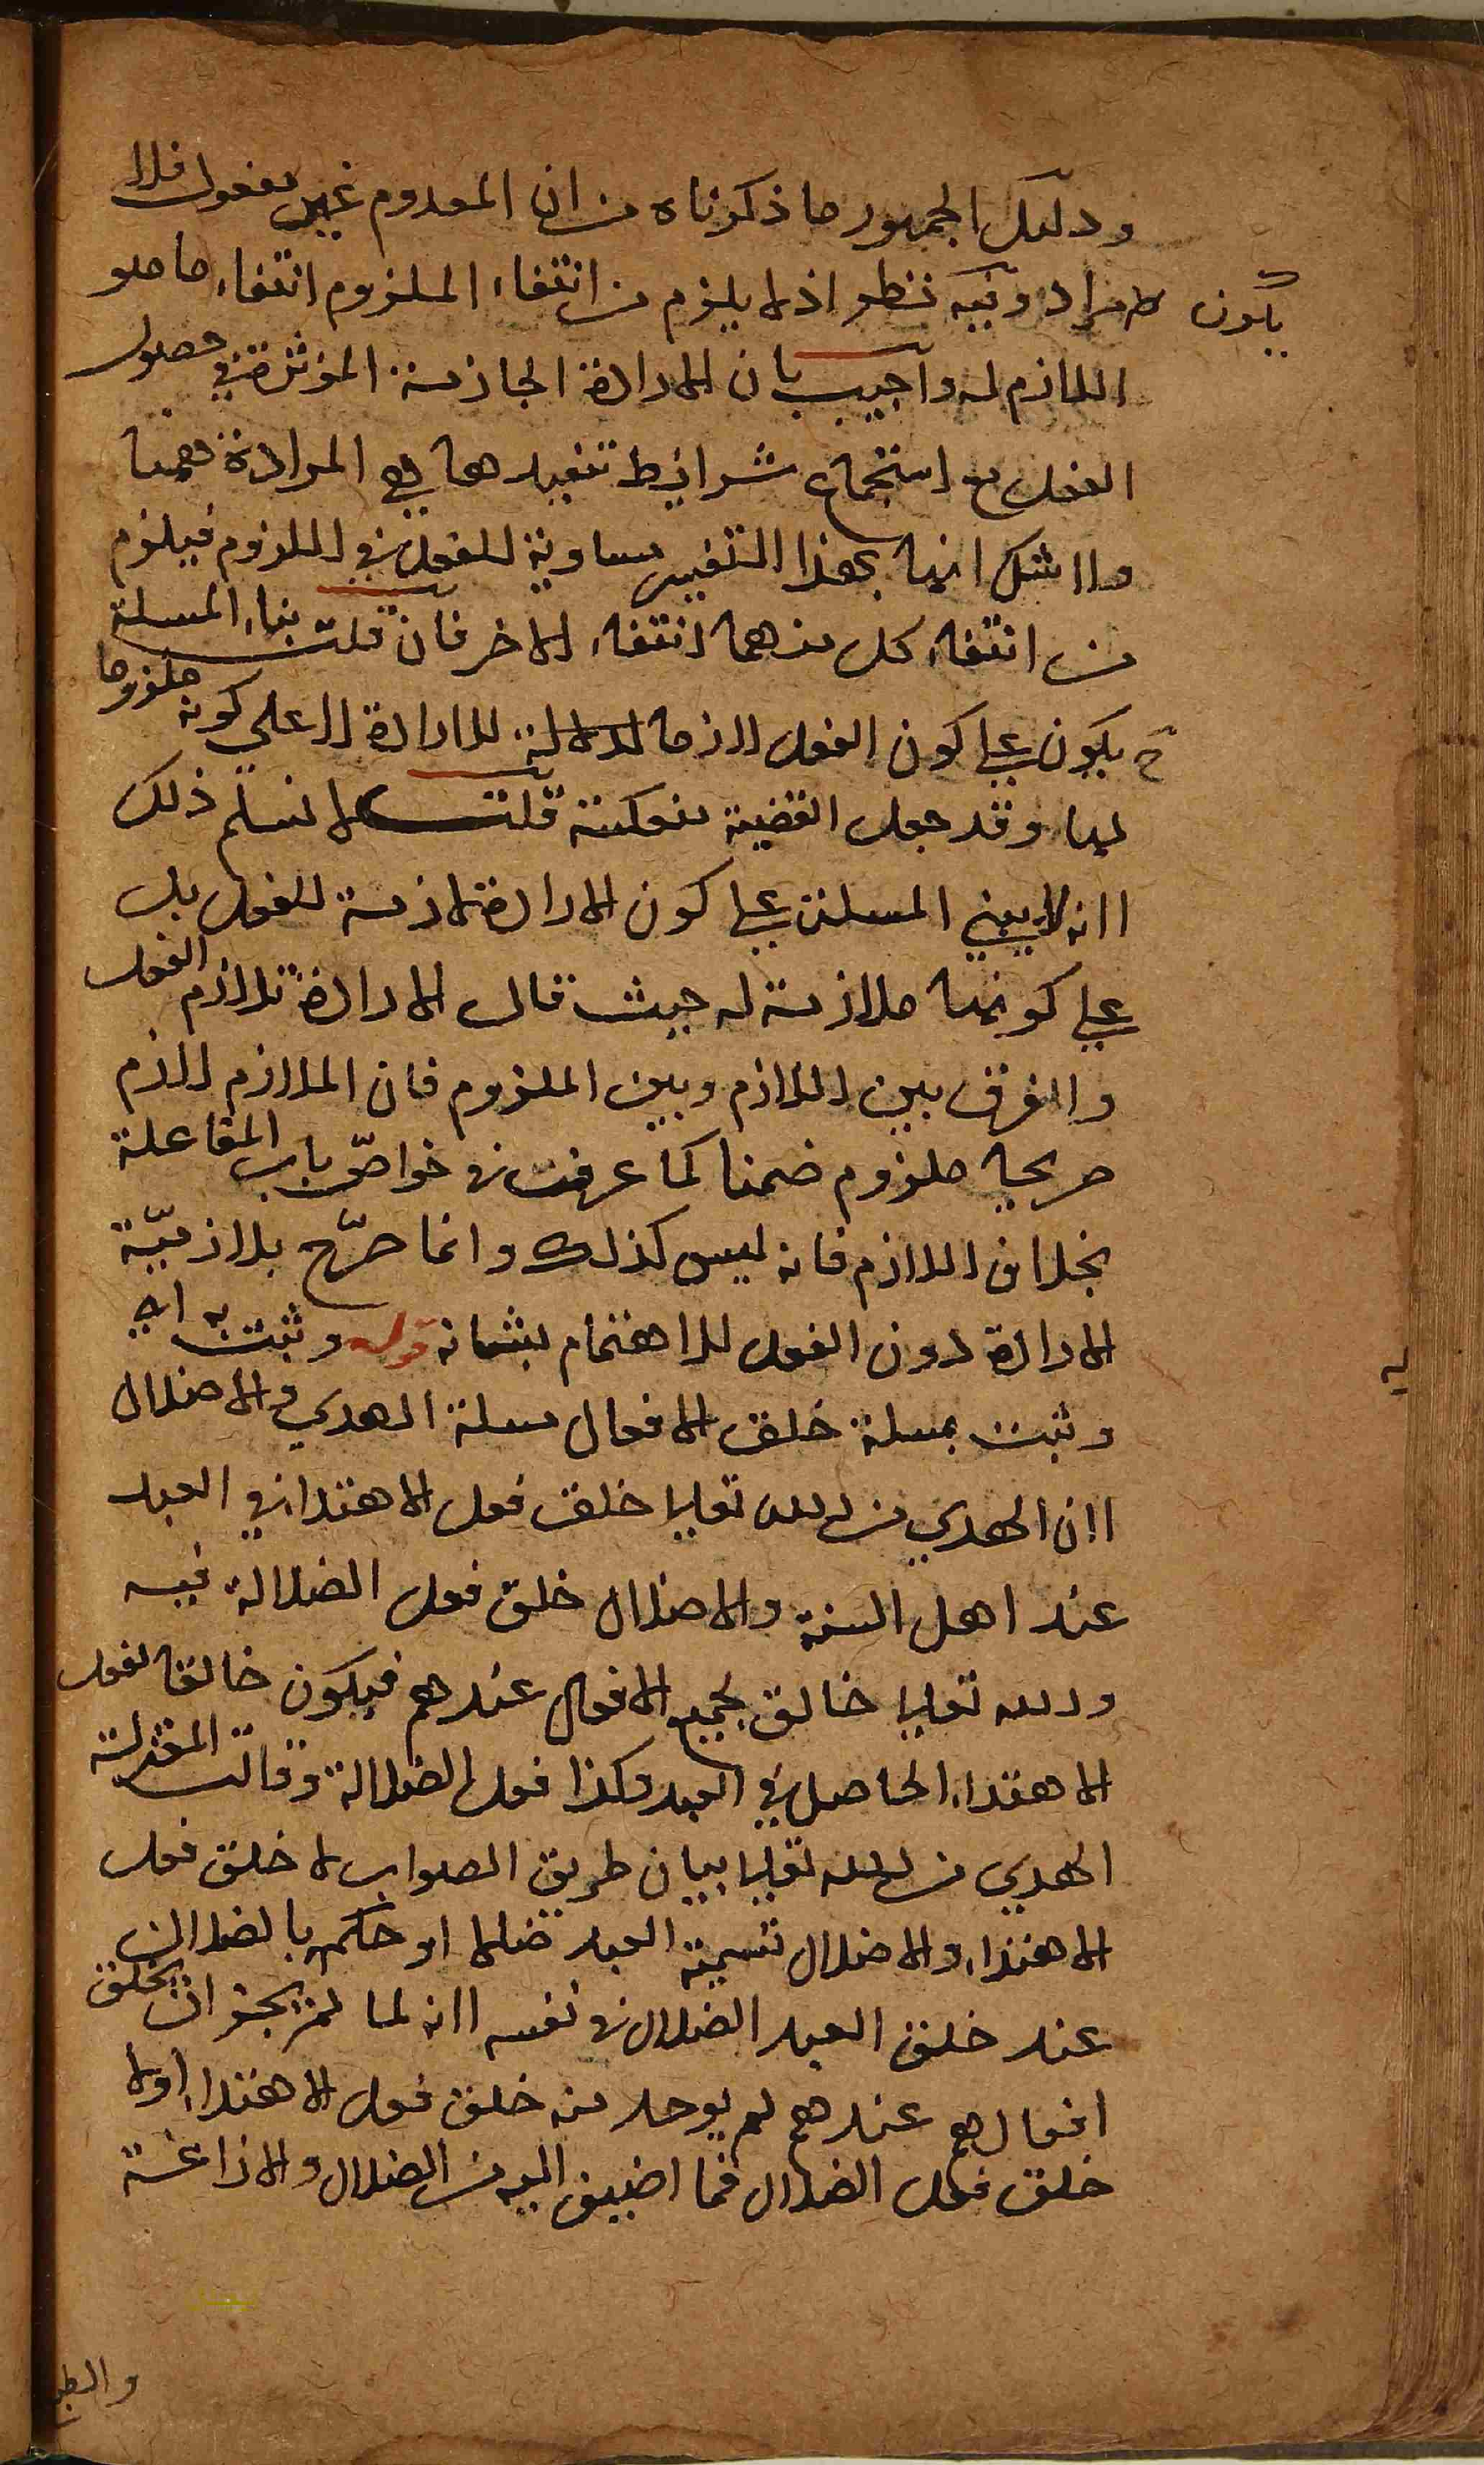 ودليل الجمهور ما ذكرناه من ان المعدوم غير مفعول فلا
يكون مرادا وفيه نظر اذ لا يلزم من انتفاء الملزوم انتفاء ما هو
اللازم له واجيب بان الارادة الجازمة المؤثرة في حصول
الفعل مع استجماع شرايط تنفيدها هي المرادة ههنا
ولا شك انها بهذا التفسير مساوية للفعل في اللزوم فيلزم
من انتفاء كل منهما انتفاء الاخر فان قلت بناء المسلة
ح يكون على كون الفعل لازما للارادة لا على كونه ملزوما
لها وقد جعل القضية منعكسة قلت لا نسلم ذلك
لانه لا يبني المسلة على كون الارادة لازمة للفعل بل
على كونها ملازمة له حيث قال الارادة تلازم الفعل
والفرق بين اللازم وبين الملزوم فان الملازم لازم
صريحا ملزوم ضمنا كما عرفت في خواص باب المفاعلة
بخلاف اللازم فانه ليس كذلك وانما صرّح بلازميّة
الارادة دون الفعل للاهتمام بشانه قوله وثبتت به اي
وثبت بمسلة خلق الافعال مسلة الهدي والاضلال
لان الهدي من الله تعالى خلق فعل الاهتدا في العبد
عند اهل السنة والاضلال خلق فعل الضلالة فيه
والله تعالى خالق لجميع الافعال عندهم فيكون خالقا لفعل
الاهتداء الحاصل في العبد وكذا فعل الضلالة وقالت المعتزلة
الهدي من الله تعالى بيان طريق الصواب لا خلق فعل
الاهتداء والاضلال تسمية العبد ضالا او حكم بالضلال
عند خلق العبد الضلال في نفسه لانه لما لم يجز ان يخلق
افعالهم عندهم لم يوجد منه خلق فعل الاهتداء ولا
خلق فعل الضلال فما اضيف اليه من الضلال والازاغة
والطبع